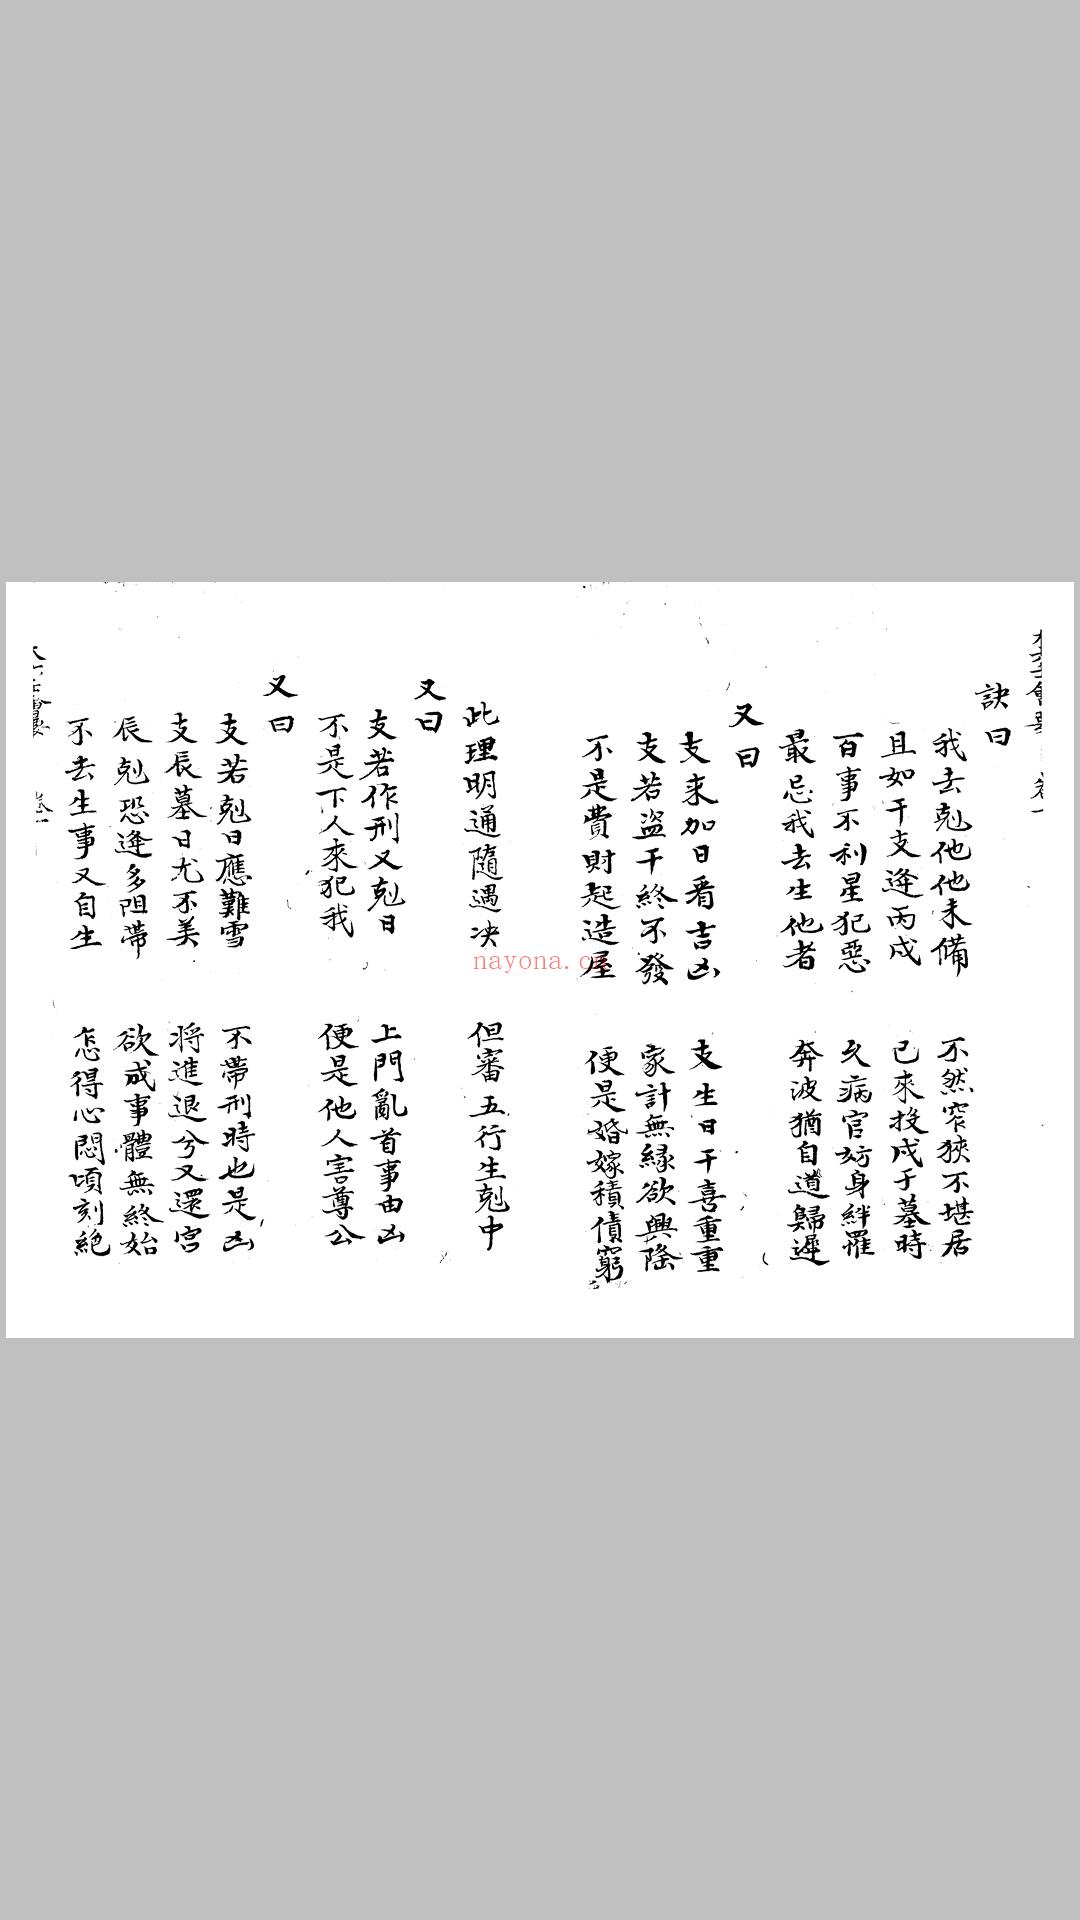 訣曰
我去剋他他未備 不然窄狹不堪居
且如干支逢丙戌 已來投戌于墓時
百事不利星犯惡 久病官妨身絆羅
最忌我去生他者 奔波猶自道歸遲
又曰
支来加日看吉凶 支生日干喜重重
支若盜干終不發 家計無緣欲興隆
不是費財起造屋 便是婚嫁積債窮
此理明通隨遇决 但審五行生剋中
又曰
支若作刑又剋日 上門亂首事由凶
不是下人來犯我 便是他人害尊公
又曰
支若剋日應難雪 不帶刑時也是凶
支辰墓日尤不美 将進退兮又還宮
辰剋恐逢多阻滯 欲成事體無終始
不去生事又自生 怎得心悶頃刻絕
nayona.cn